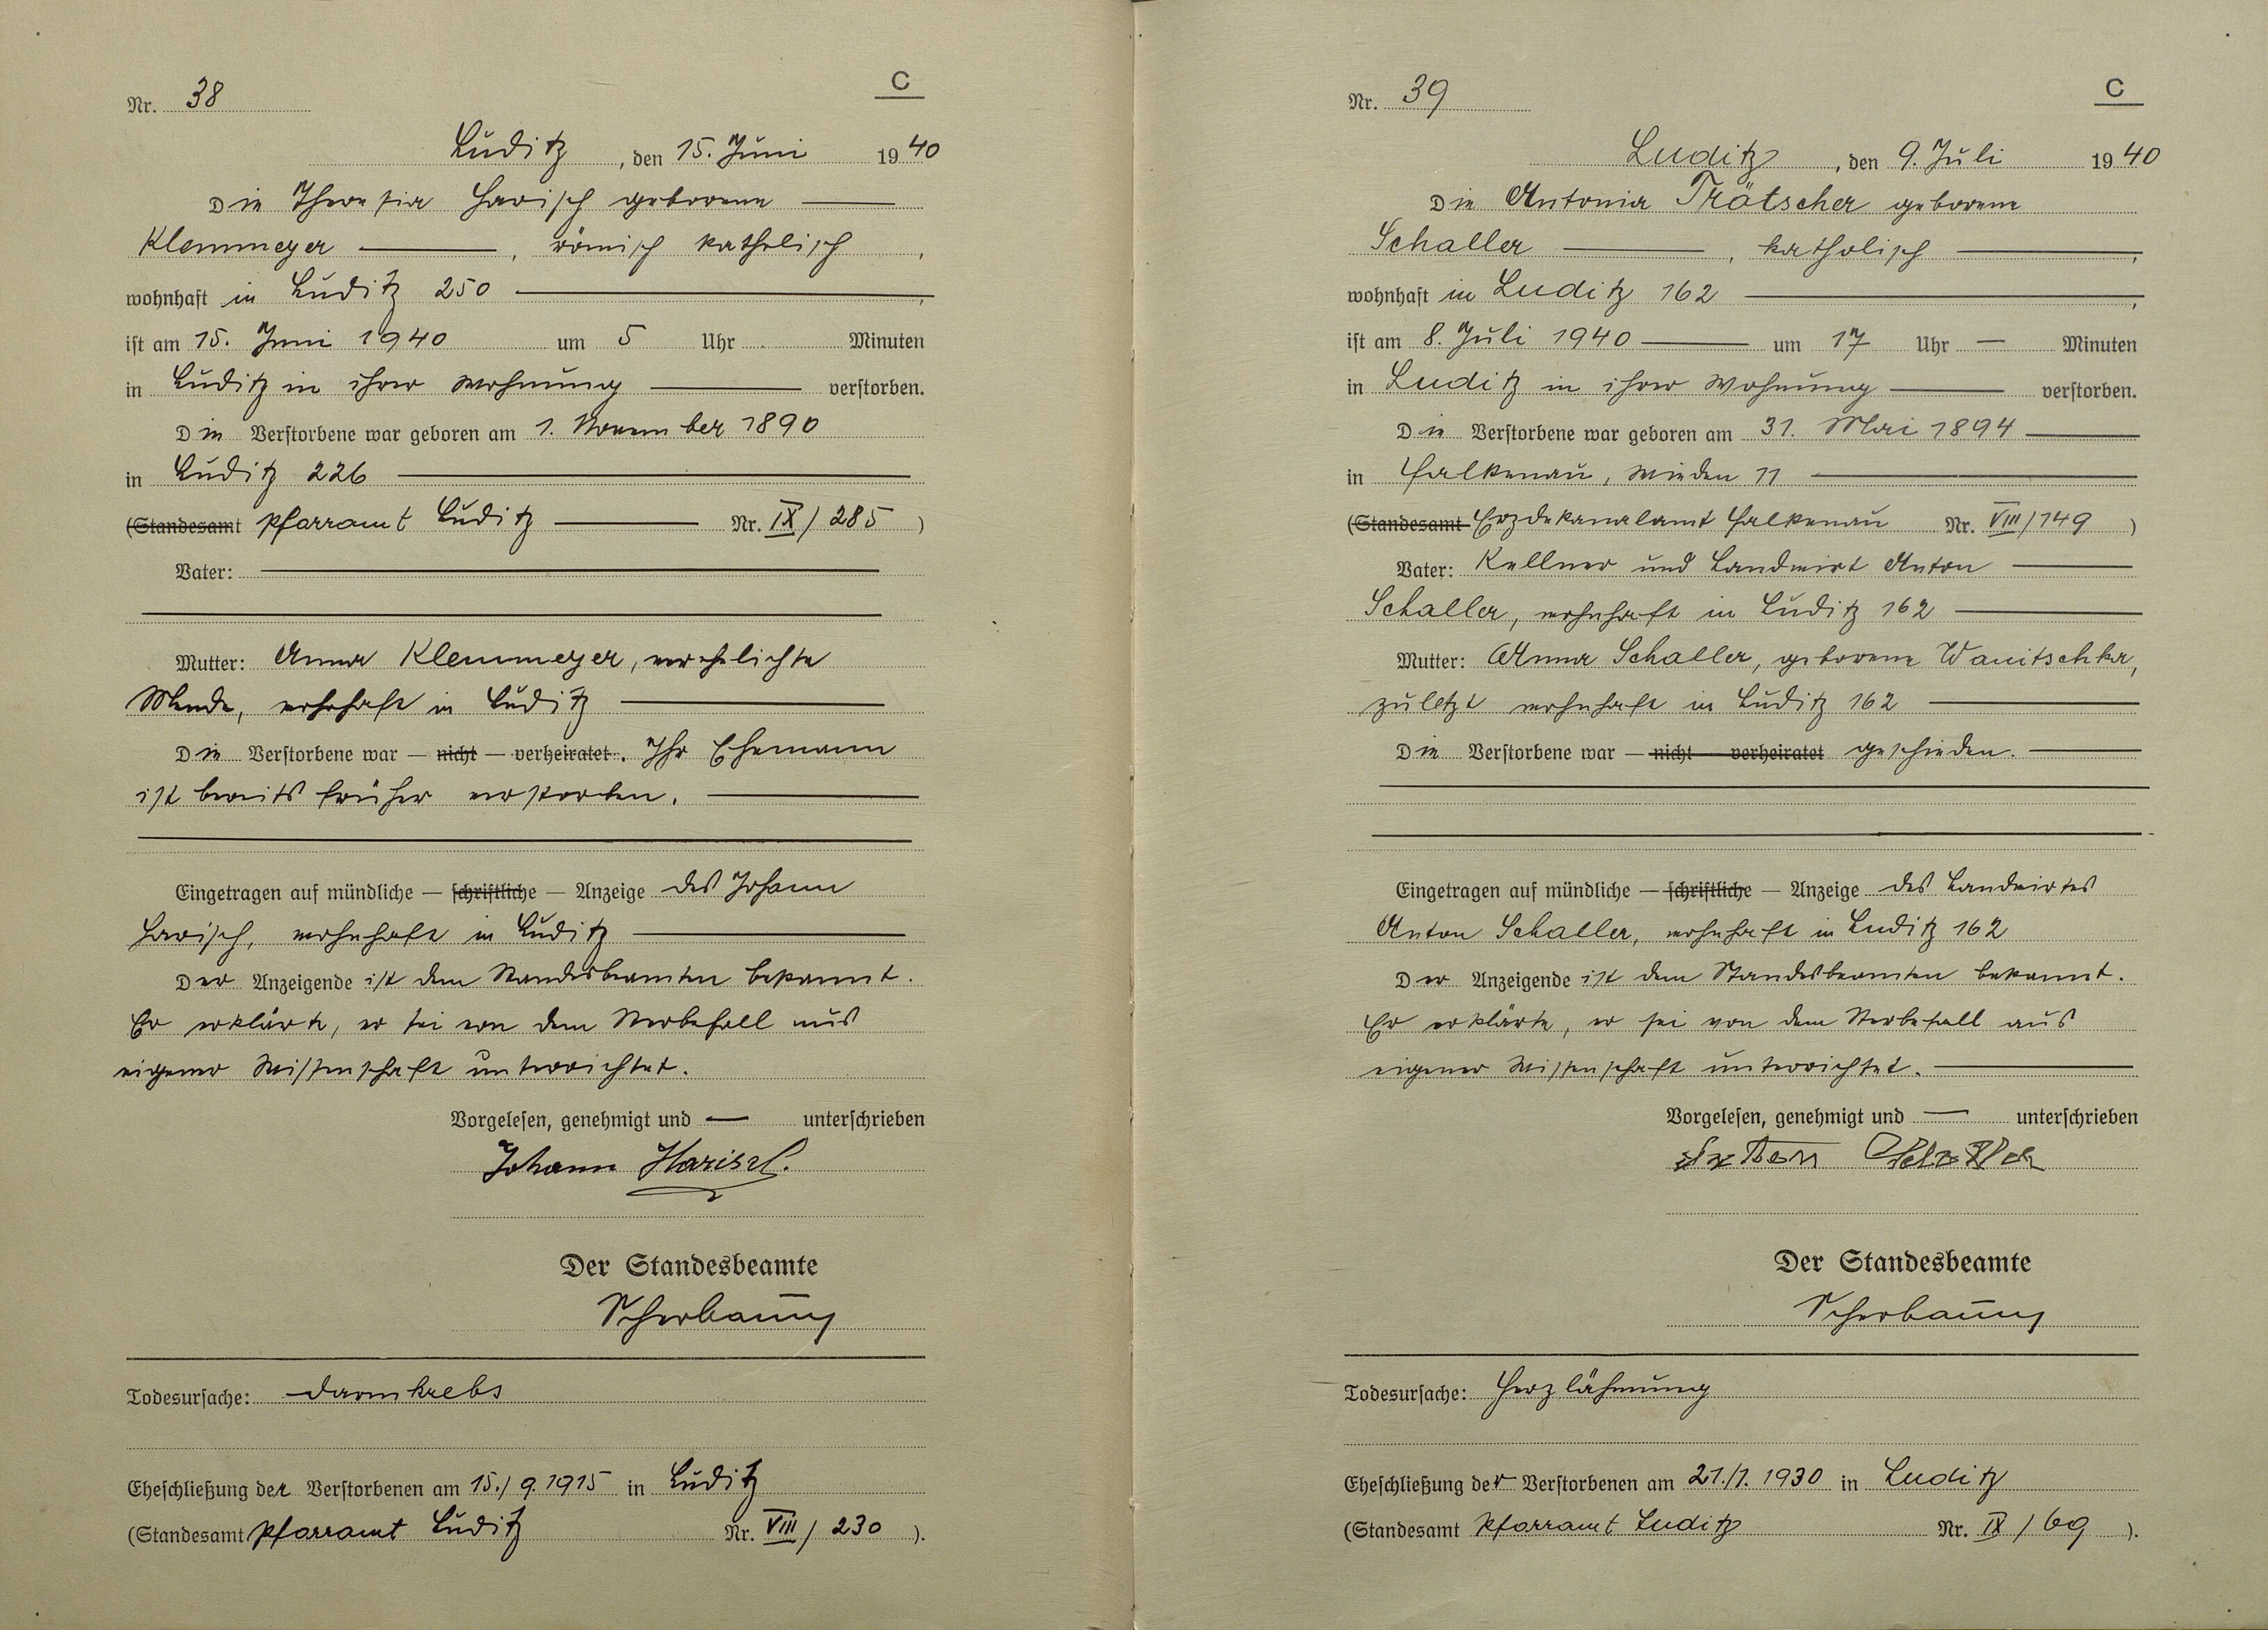 Nr. 38
C
Luditz, den 15. Juni 1940
Die Theresia Harisch geborene
Klemmeyer, römisch katholisch,
wohnhaft in Luditz 250,
ist am 15. Juni 1940 um 5 Uhr Minuten
in Luditz in ihrer Wohnung verstorben.
Die Verstorbene war geboren am 1. November 1890
in Luditz 226
(Standesamt Pfarramt Luditz Nr. IX/285)
Vater:
Mutter: Anna Klemmeyer, verehelichte
wohnhaft in Luditz
Die Verstorbene war — nicht — verheiratet. Ihr Ehemann
ist bereits früher verstorben.
Eingetragen auf mündliche — schriftliche — Anzeige des Johann
Harisch, wohnhaft in Luditz
Der Anzeigende ist dem Standesbeamten bekannt.
Er erklärte, er sei von dem Sterbefall aus
eigener Wissenschaft unterrichtet.
Vorgelesen, genehmigt und — unterschrieben
Johann Harisch.
Der Standesbeamte
Scherbaum
Todesursache: Darmkrebs
Eheschließung der Verstorbenen am 15./9.1915 in Luditz
(Standesamt Pfarramt Luditz Nr. VIII/230).
Nr. 39
C
Luditz, den 9. Juli 1940
Die Antonia Trötscher geborene
Schaller, katholisch,
wohnhaft in Luditz 162,
ist am 8. Juli 1940 um 17 Uhr — Minuten
in Luditz in ihrer Wohnung verstorben.
Die Verstorbene war geboren am 31. Mai 1894
in Falkenau, Wieden 11
(Standesamt Erzdekanalamt Falkenau Nr. VIII/149)
Vater: Kellner und Landwirt Anton
Schaller, wohnhaft in Luditz 162
Mutter: Anna Schaller, geborene Wanitschka,
zuletzt wohnhaft in Luditz 162
Die Verstorbene war — nicht verheiratet geschieden.
Eingetragen auf mündliche — schriftliche — Anzeige des Landwirtes
Anton Schaller, wohnhaft in Luditz 162
Der Anzeigende ist dem Standesbeamten bekannt.
Er erklärte, er sei von dem Sterbefall aus
eigener Wissenschaft unterrichtet.
Vorgelesen, genehmigt und — unterschrieben
Anton Schaller
Der Standesbeamte
Scherbaum
Todesursache: Herzlähmung
Eheschließung der Verstorbenen am 21./1. 1930 in Luditz
(Standesamt Pfarramt Luditz Nr. IX/69).